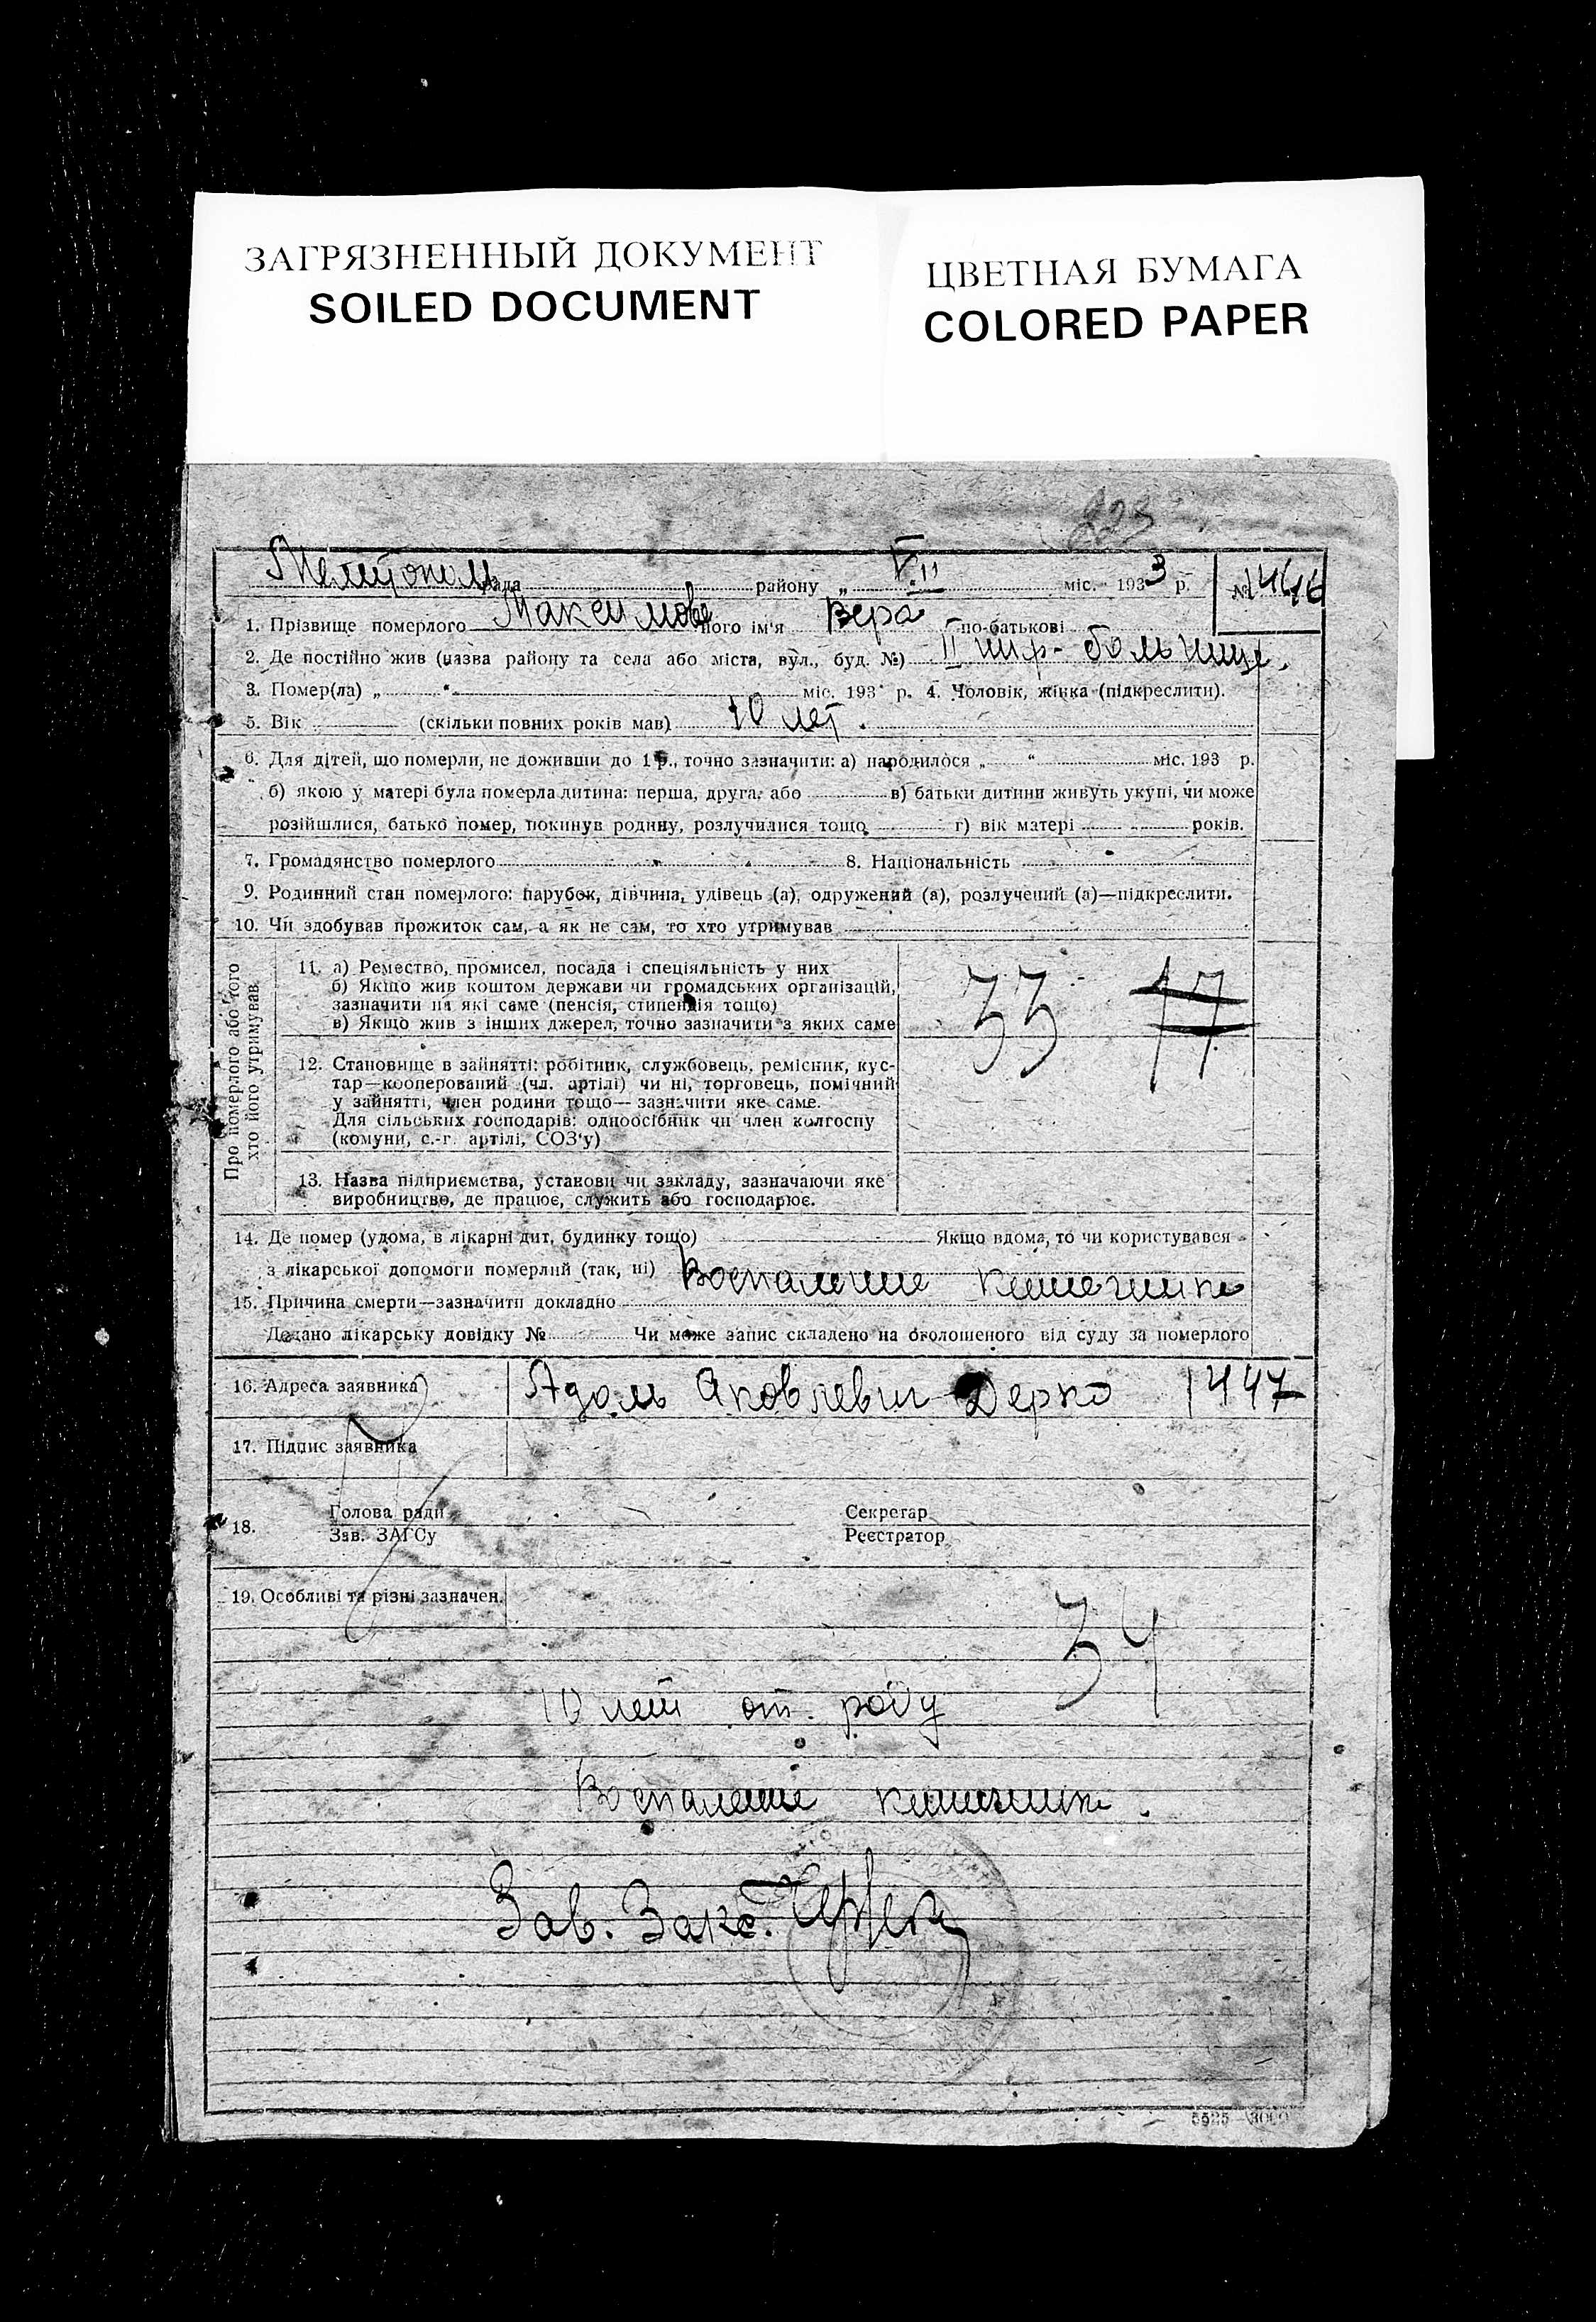 ЗАГРЯЗНЕННЫЙ ДОКУМЕНТ
SOILED DOCUMENT
ЦВЕТНАЯ БУМАГА
COLORED PAPER
223
Мелитополь рада району „ VII міс. 1933 р. №
1. Прізвище померлого Максимова його ім'я Вера по-батькові
2. Де постійно жив (назва району та села або міста, вул., буд. №) II больнице.
3. Помер(ла) „ “ міс. 193 р. 4. Чоловік, жінка (підкреслити).
5. Вік (скільки повних років мав) 10 лет.
6. Для дітей, що померли, не доживши до 1 р., точно зазначити: а) народилося „ “ міс. 193 р.
б) якою у матері була померла дитина: перша, друга, або в) батьки дитини живуть укупі, чи може
розійшлися, батько помер, покинув родину, розлучилися тощо г) вік матері років.
7. Громадянство померлого 8. Національність
9. Родинний стан померлого: парубок, дівчина, удівець (а), одружений (а), розлучений (а)—підкреслити.
10. Чи здобував прожиток сам, а як не сам, то хто утримував
Про померлого або того
хто його утримував.
11. а) Ремество, промисел, посада і спеціяльність у них
б) Якщо жив коштом держави чи громадських організацій,
зазначити на які саме (пенсія, стипендія тощо)
в) Якщо жив з інших джерел, точно зазначити з яких саме
33 17
12. Становище в зайнятті: робітник, службовець, ремісник, кус-
тар—кооперований (чл. артілі) чи ні, торговець, помічний
у зайнятті, член родини тощо— зазначити яке саме.
Для сільських господарів: одноосібник чи член колгоспу
(комуни, с.-г. артілі, СОЗ'у)
13. Назва підприємства, установи чи закладу, зазначаючи яке
виробництво, де працює, служить або господарює.
14. Де помер (удома, в лікарні дит. будинку тощо) Якщо вдома, то чи користувався
з лікарської допомоги померлий (так, ні)
15. Причина смерти—зазначити докладно Воспаление кишечника
Додано лікарську довідку № Чи може запис складено на оголошеного від суду за померлого
16. Адреса заявника Яковлевич Дерко 1447
17. Підпис заявника
18. Голова ради Секретар
Зав. ЗАГСу Реєстратор
19. Особливі та різні зазначен.
34
10 лет от роду
Воспаление кишечника.
Зав. Закс.
5585 3000